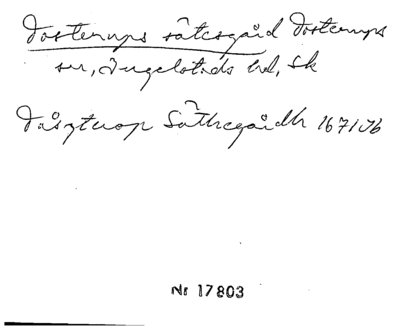 Tosterups sätesgård Tosterups
sn, Ingelstads hd, Sk
Tåszterop Säthegåidh 1671 Jb
Nr 17803